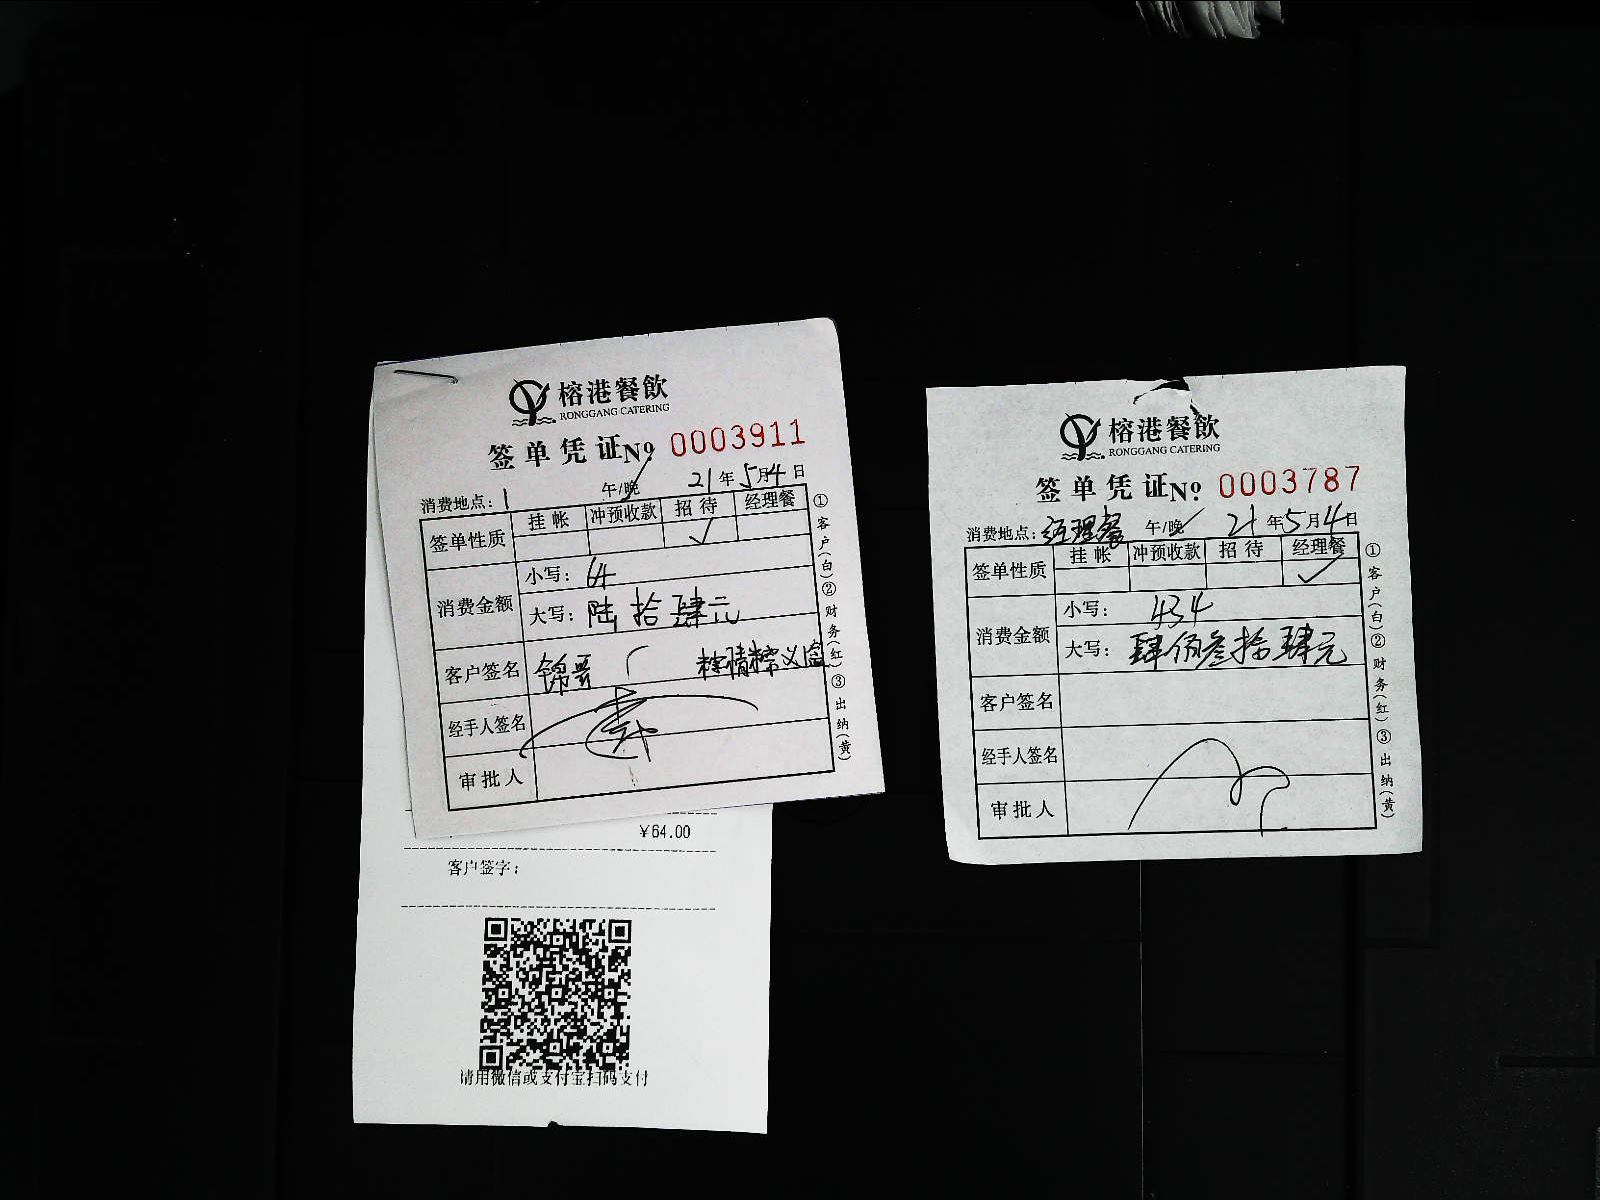 榕港餐飲
RONGGANG CATERING
签单凭证№ 0003911
消费地点: 1 午/晚 21年5月4日
签单性质 挂帐 冲预收款 招待 经理餐
✓
消费金额 小写: 64
大写: 陆拾肆元
客户签名
经手人签名
审批人
①客户(白)②财务(红)③出纳(黄)
¥64.00
客户签字:
请用微信或支付宝扫码支付
榕港餐飲
RONGGANG CATERING
签单凭证№ 0003787
消费地点: 经理餐 午/晚 21年5月4日
签单性质 挂帐 冲预收款 招待 经理餐
✓
消费金额 小写: 434
大写: 肆佰叁拾肆元
客户签名
经手人签名
审批人
①客户(白)②财务(红)③出纳(黄)